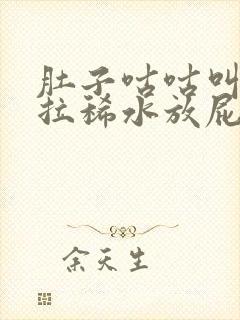 肚子咕咕叫
拉稀水放屁
余天生